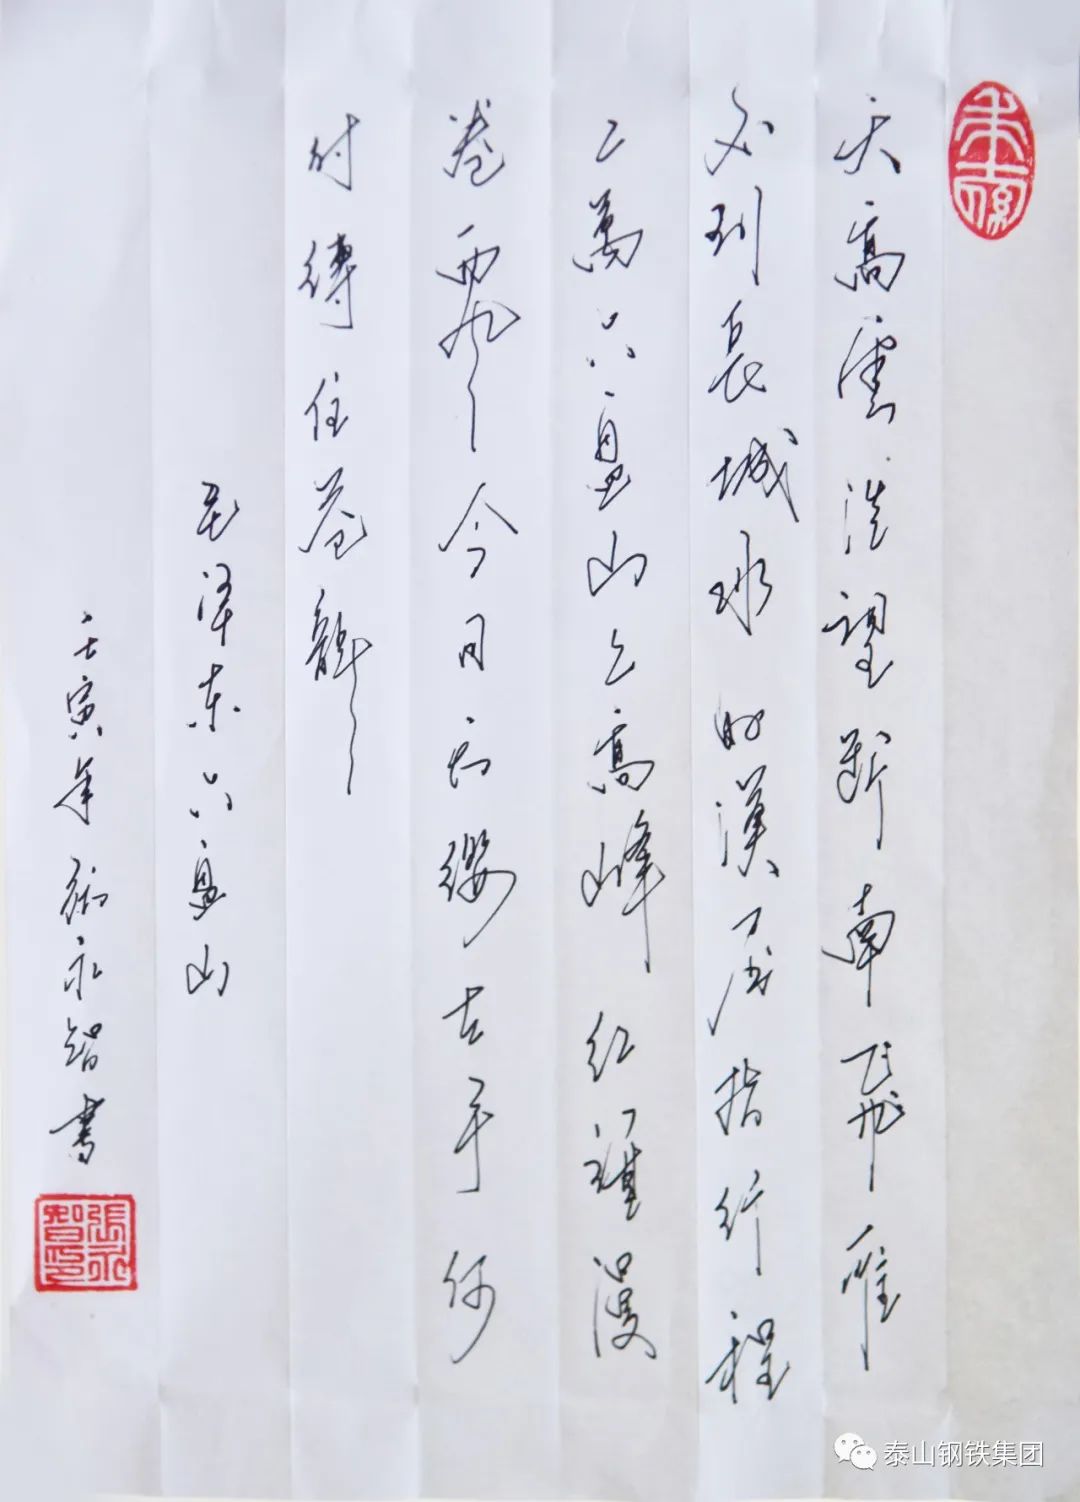 天高雲淡望斷南飛雁
不到長城非好漢屈指行程
二萬六盤山上高峰紅旗漫
卷西風今日長纓在手何
時縛住蒼龍
毛泽东六盤山
壬寅年張永智書
張永智印
泰山钢铁集团